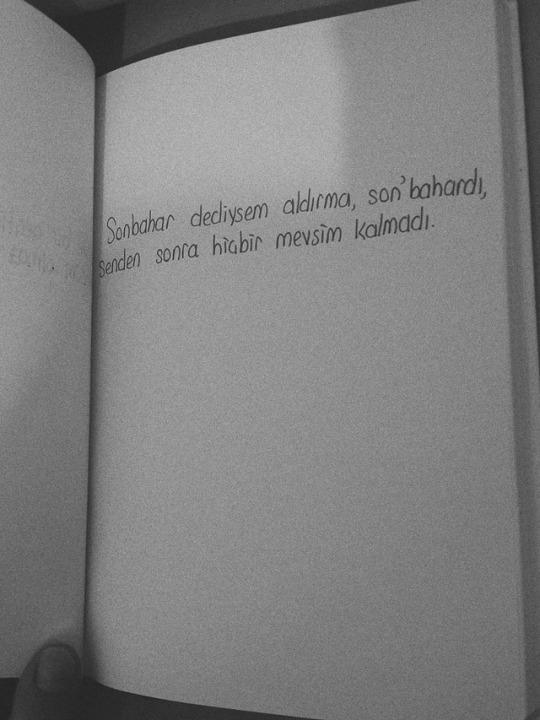 Sonbahar dediysem aldırma, son'bahardı,
senden sonra hiçbir mevsim kalmadı.